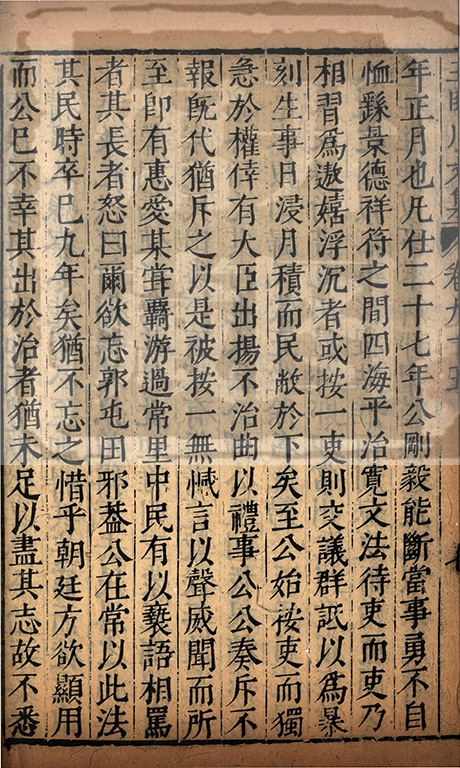 王臨川文集 卷九十五
年正月也凡仕二十七年公剛毅能斷當事勇不自
恤繇景德祥符之間四海平治寛文法待吏而吏乃
相習爲遨嬉浮沉者或按一吏則交議群詆以爲暴
刻生事日浸月積而民敝於下矣至公始按吏而獨
急於權倖有大臣出揚不治曲以禮事公公奏斥不
報旣代猶斥之以是被按一無憾言以聲威聞而所
至卽有惠愛某甞覊游過常里中民有以䙝語相罵
者其長者怒曰爾欲忘郭屯田邪葢公在常以此法
其民時卒巳九年矣猶不忘之惜乎朝廷方欲顯用
而公巳不幸其出於治者猶未足以盡其志故不悉